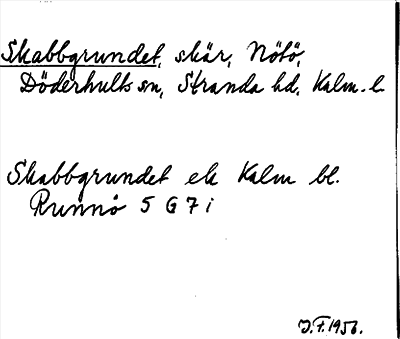 Skabbgrundet, skär, Nötö,
Döderhults sn, Stranda hd, Kalm. l.
Skabbgrundet ek Kalm bl.
Runnö 5 G 7 i
J.F. 1956.